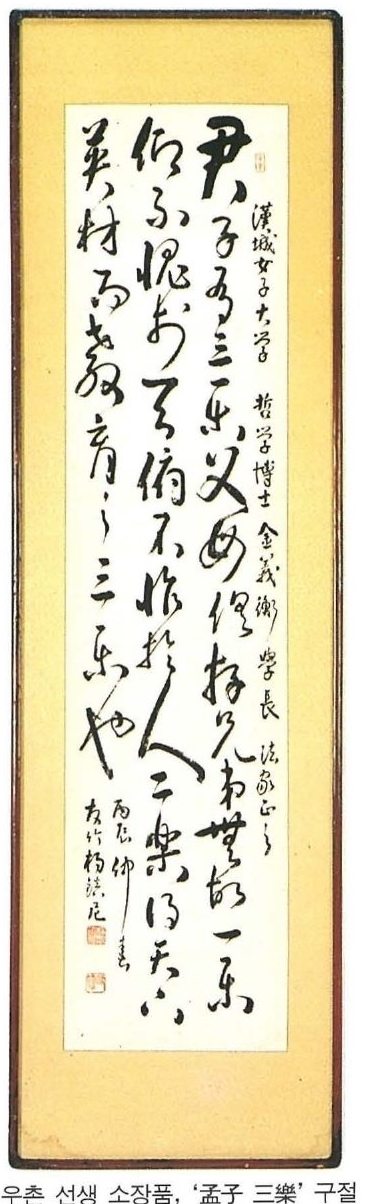 漢城女子大学 哲学博士 金義衡 學長 法家正之
君子有三樂父母俱存兄弟無故一樂
仰不愧於天俯不怍於人二楽得天下
英材而敎育之三樂也
丙辰仲春
友竹楊鎮尼
우촌 선생 소장품, ‘孟子 三樂’ 구절